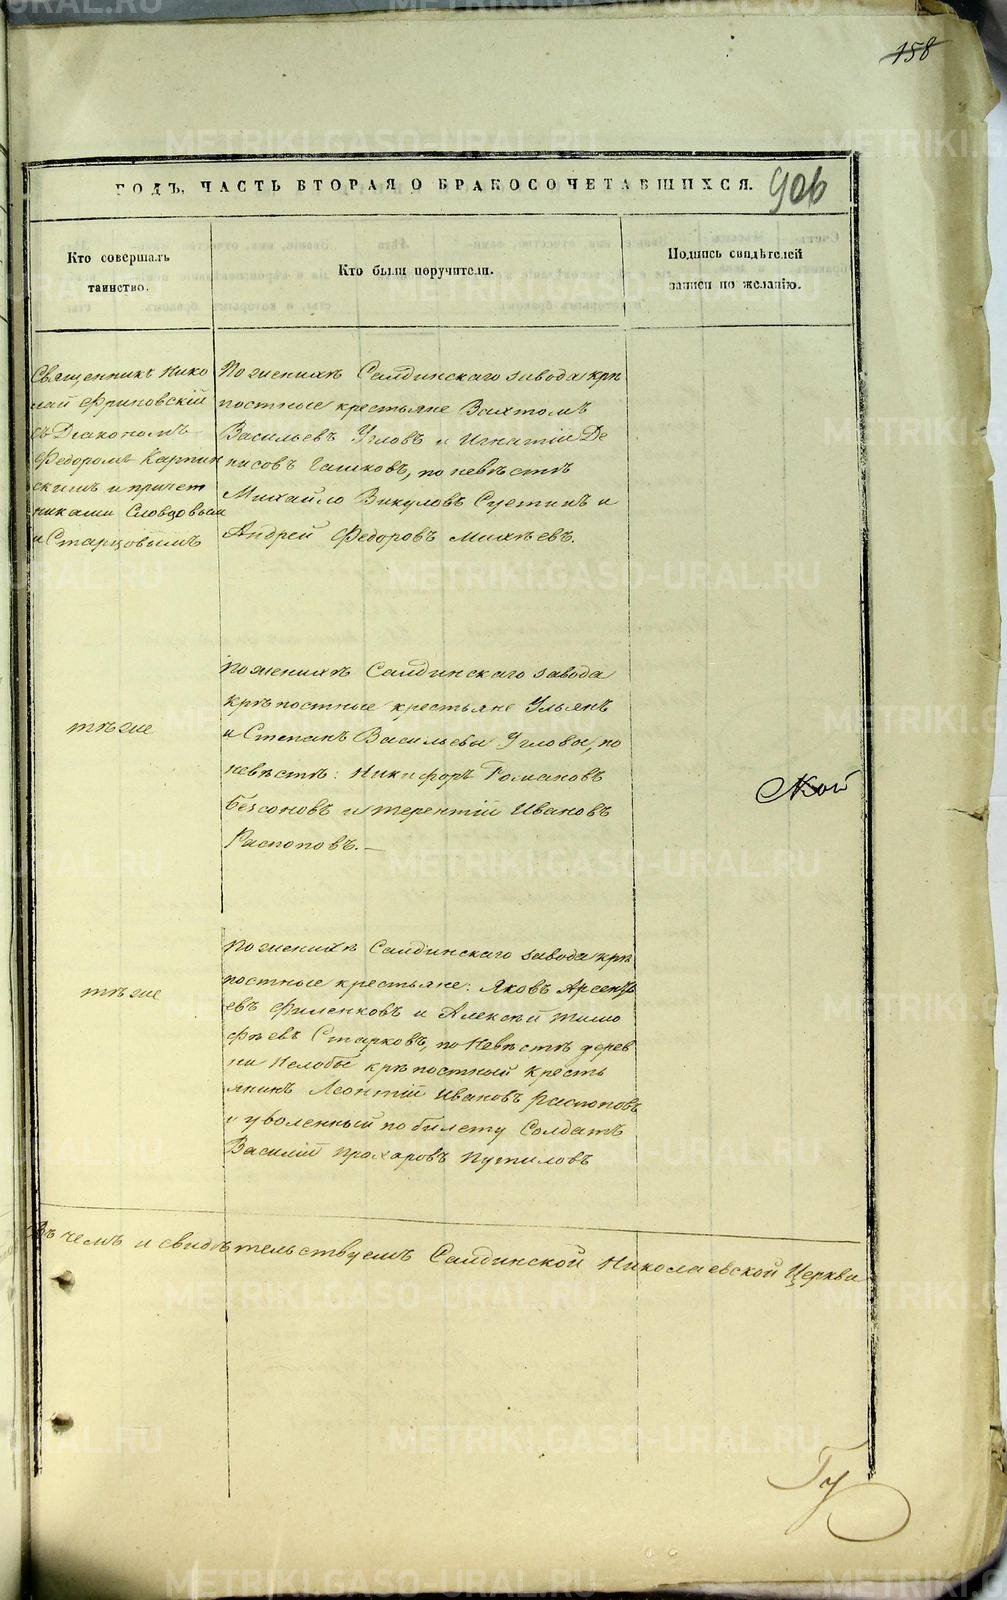 158
ГОДЪ, ЧАСТЬ ВТОРАЯ О БРАКОСОЧЕТАВШИХСЯ.
906
Кто совершалъ
таинство.
Кто были поручители.
Подпись свидѣтелей
записи по желанію.
Священникъ Нико
лай Фриновскій
съ Діакономъ
Федоромъ Карпин
скимъ и причет
никами Словцовым
и Старцовымъ
По женихѣ Салдинскаго завода крѣ
постные крестьяне
Васильевъ Угловъ и Игнатій Де
нисовъ Гашковъ, по невѣстѣ
Михайло Викуловъ Суетинъ и
Андрей Федоровъ Михѣевъ.
тѣже
По женихѣ Салдинскаго завода
крѣпостные крестьяне Ульянъ
и Степанъ Васильевы Угловы, по
невѣстѣ: Никифоръ Романовъ
Безсоновъ и Терентій Ивановъ
Распоповъ.—
ской
тѣже
По женихѣ Салдинскаго завода крѣ
постные крестьяне: Яковъ Арсенть
евъ Филенковъ и Алексѣй Тимо
фѣевъ Старковъ, по Невѣстѣ дерев
ни Нелобы крѣпостный Кресть
янинъ Леонтій Ивановъ Распоповъ
и уволенный по билету Солдатъ
Василій Прохоровъ Путиловъ
Въ чемъ и свидѣтельствуемъ Салдинской Николаевской Церкви
Гу
METRIKI.GASO-URAL.RU